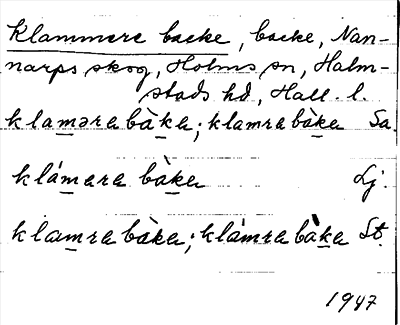 Klammere backe, backe, Nan-
narps skog, Holms sn, Halm-
stads hd, Hall. l.
klaməra bàka; klamra bàka Sa.
klámara bàka Lj.
klamra bàka; klàmra bàka St.
1947